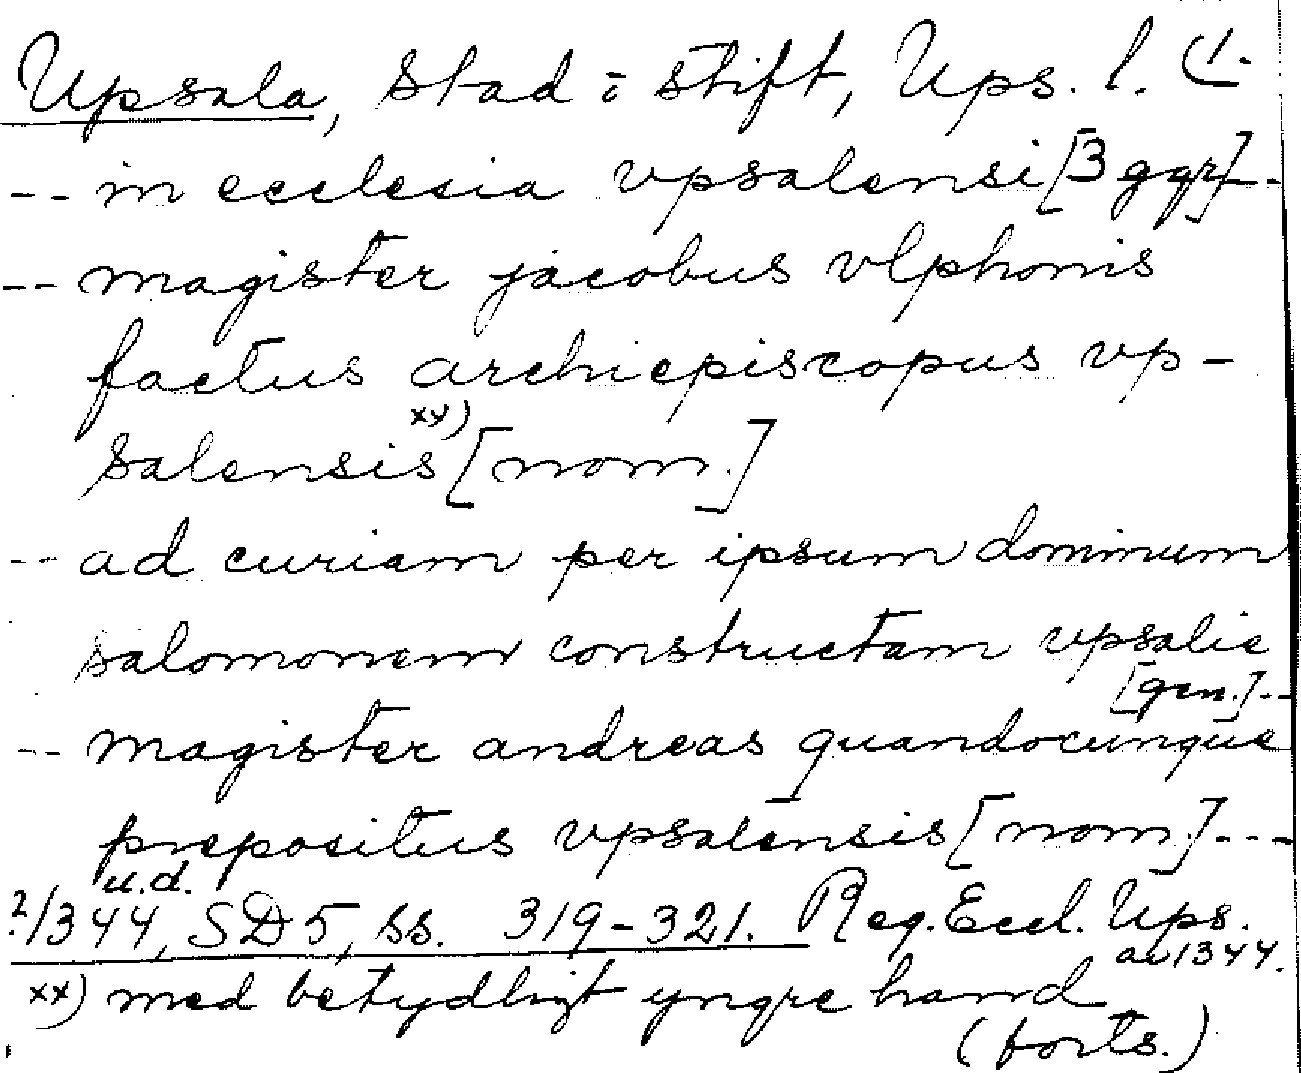 Upsala, Stad o stift, Ups. l. (1.
-- in ecclesia vpsalensi [3 ggr] --
-- magister jacobus vlphonis
factus archiepiscopus vp-
salensis xx) [nom.]
-- ad curiam per ipsum dominum
salomonem constructam vpsalie
[gen.] --
-- magister andreas quandocunque
prepositus vpsalensis [nom.] ---
u.d.
?/1344, SD 5, ss. 319-321. Reg. Eccl. Ups.
av 1344.
xx) med betydligt yngre hand
(forts.)